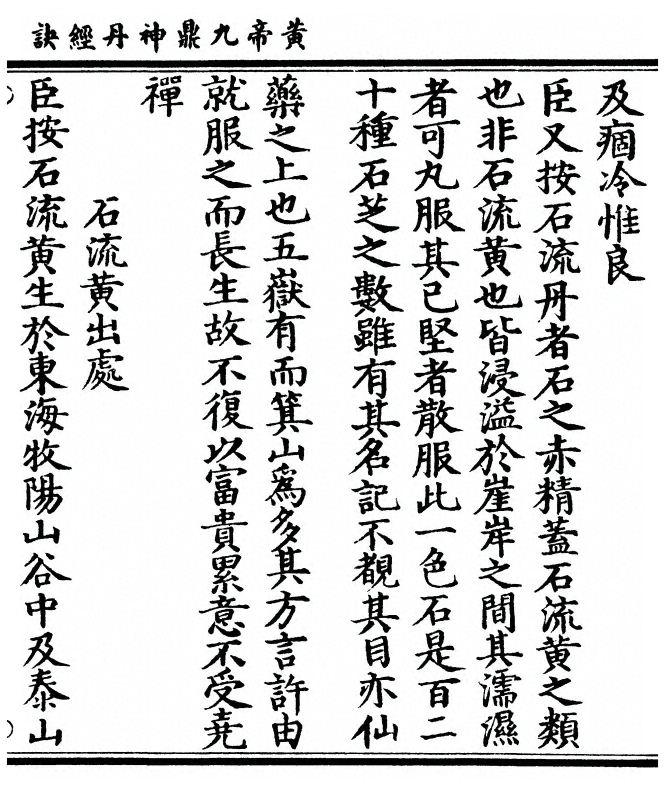 黃帝九鼎神丹經訣
及痼冷惟良
臣又按石流丹者石之赤精蓋石流黃之類
也非石流黃也皆浸溢於崖岸之間其濡濕
者可丸服其已堅者散服此一色石是百二
十種石芝之數雖有其名記不覩其目亦仙
藥之上也五嶽有而箕山為多其方言許由
就服之而長生故不復以富貴累意不受堯
禪
石流黃出處
臣按石流黃生於東海牧陽山谷中及泰山